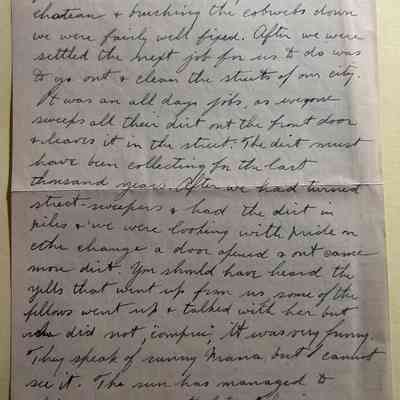 chateau & brushing the cobwebs down
we were fairly well fixed. After we were
settled the next job for us to do was
to go out & clean the streets of our city.
It was an all days job, as everyone
sweeps all their dirt out the front door
& leaves it in the street. The dirt must
have been collecting for the last
thousand years. After we had turned
street-sweepers & had the dirt in
piles & we were looking with pride on
the change a door opened & out came
more dirt. You should have heard the
yells that went up from us, some of the
fellows went up & talked with her but
she did not "compree", It was very funny.
They speak of sunny France but I cannot
see it. The sun has managed to